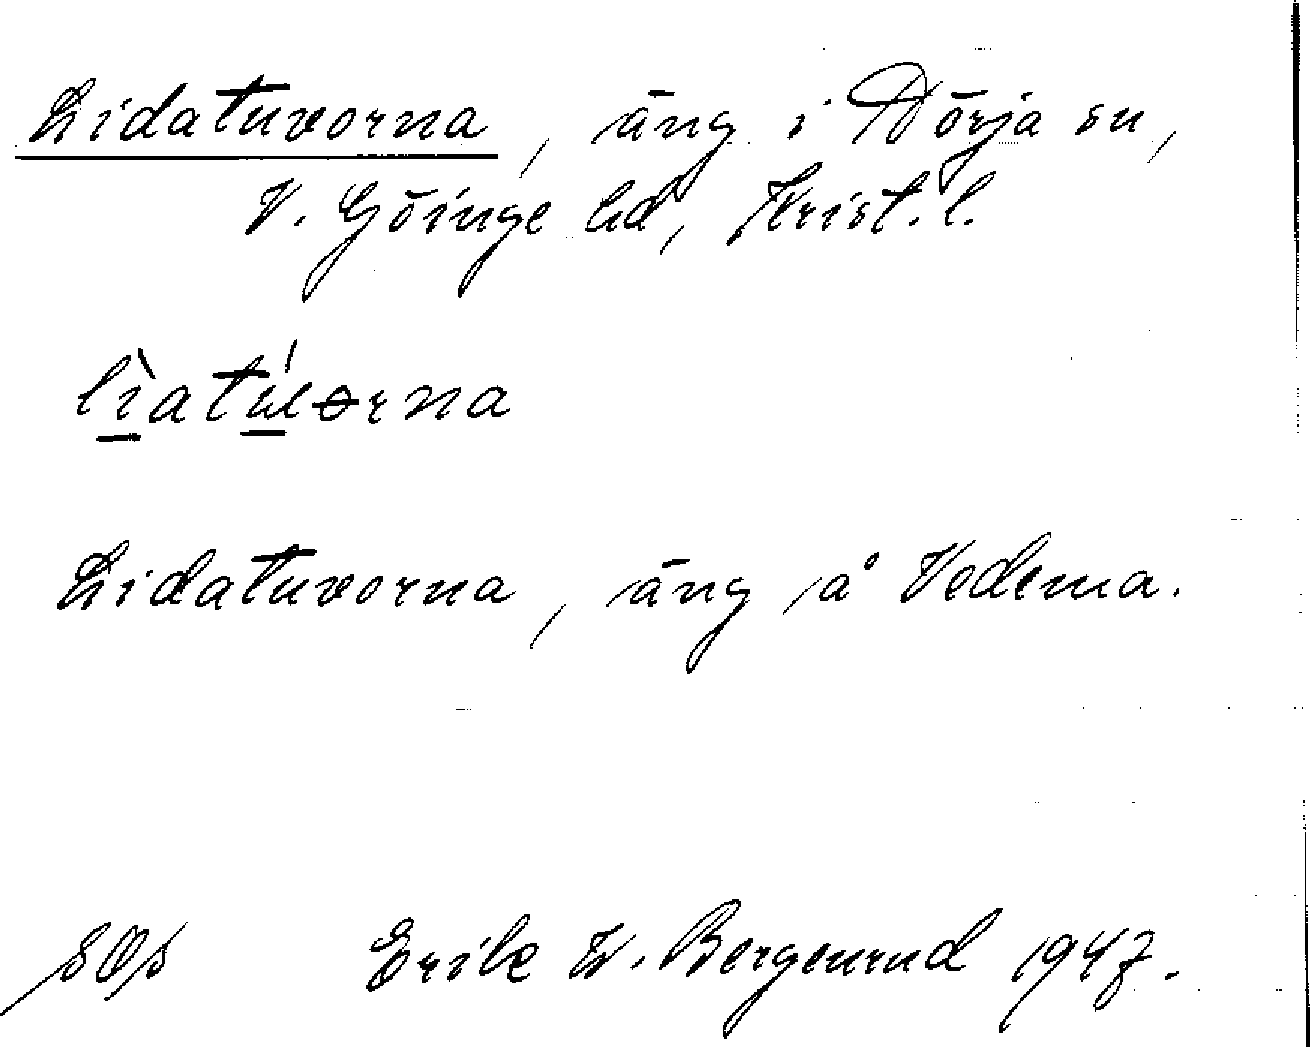 Lidatuvorna, äng i Dörja sn,
V. Göinge hd, Krist. l.
lìatúvorna
Lidatuvorna, äng på Vedema.
Erik W. Bergenrud 1947.